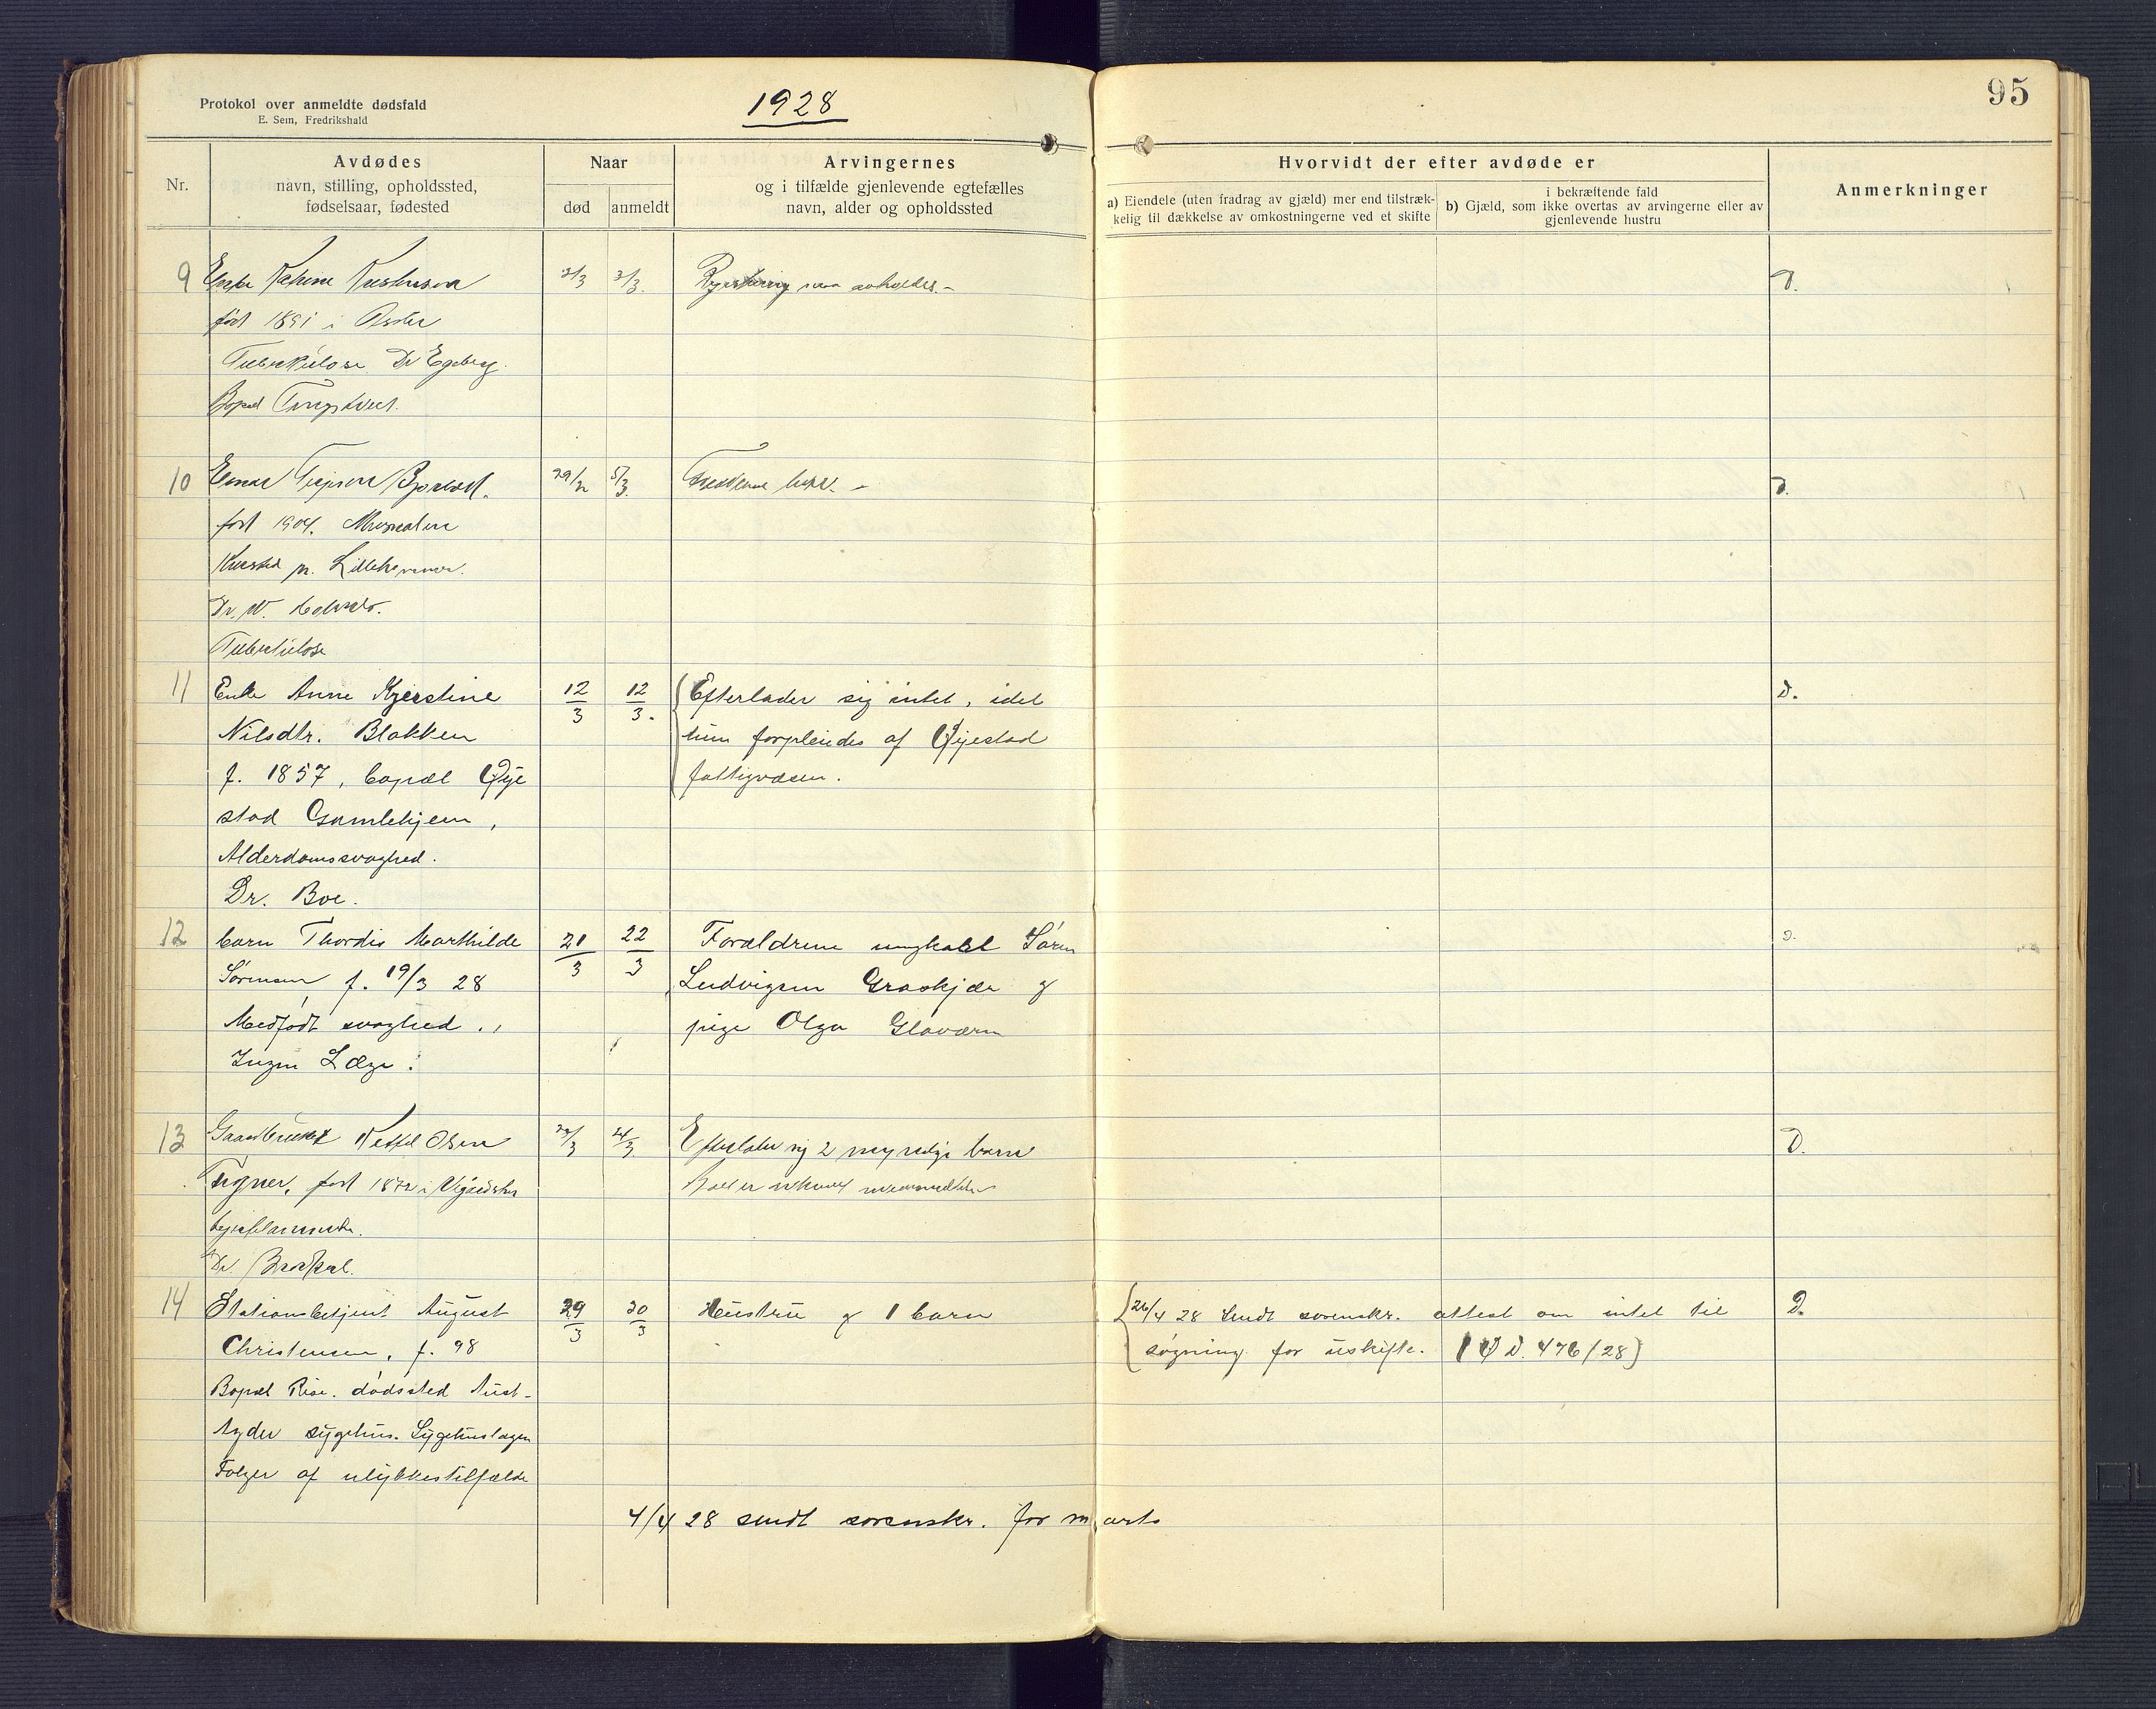 95
Protokol over anmeldte dødsfald
E. Sem, Fredrikshald
1928
Nr.
Avdødes
navn, stilling, opholdssted,
fødselsaar, fødested
Naar
død
anmeldt
Arvingernes
og i tilfælde gjenlevende egtefælles
navn, alder og opholdssted
Hvorvidt der efter avdøde er
a) Eiendele (uten fradrag av gjæld) mer end tilstræk-
kelig til dækkelse av omkostningerne ved et skifte
i bekræftende fald
b) Gjæld, som ikke overtas av arvingerne eller av
gjenlevende hustru
Anmerkninger
9 Enke
født 1891 i
Tuberkulose Dr Egeberg.
Bopæl
10 29/2 5/3.
født 1904. Mesnalien
Kursted pr. Lillehammer.
Dr. W.
Tuberkulose
11 Enke Anne Kjerstine 12/3 12/3. Efterlader sig intet, idet D.
Nilsdtr. Blakken hun forpleiedes af Øyestad
f. 1857, bopæl Øye fattigvæsen.
stad Gamlehjem,
Alderdomssvaghed.
Dr. Boe.
12 barn Thordis Marthilde 21/3 22/3 Forældrene ungkarl Søren D.
Sørensen f. 19/3 28 Ludvigsen Graskjær &
Medfødt svaghed., pige Olga Glaværn
Ingen Læge!
13 Gaardbruker Kettil Olsen Efterlater sig 2 myndige barn D.
født 1872 i Vegaardshei
Dr.
14 Stationsbetjent August 29/3 30/3 Hustru & 1 barn 26/4 28 sendt sorenskr. attest om intet til D.
Christensen, f. 98 søgning for uskifte. (D. 476/28)
Bopæl Rise. dødssted Aust-
Agder sygehus. Sygehuslægen
Følger af ulykkestilfælde
4/4 28 sendt sorenskr. for marts